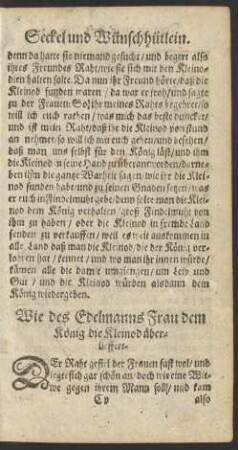 Seckel und Wünschhütlein.
denn da hatte sie niemand gesucht / und begert also
ihres Freundes Raht / wie sie sich mit den Kleino-
dien halten solte. Da nun ihr Freund hörte / daß die
Kleinod funden waren / da war er froh / und sagte
zu der Frauen: So ihr meines Rahts begehret / so
will ich euch rathen / was mich das beste duncket /
und ist mein Raht / daß ihr die Kleinod von stund
an nehmet / so will ich mit euch gehen / und besehen /
daß man uns selbst für den König laß / und ihm
die Kleinod in seine Hand zu überantworten / darne-
ben ihm die gantze Warheit sagen / wie ihr die Klei-
nod funden habt und zu seinen Gnaden setzen / was
er euch zu Findelmuht gebe / denn solte man die Klei-
nod dem König verhalten / groß Findelmuht von
ihm zu haben / oder die Kleinod in fremde Land
senden zu verkauffen / weil es weit auskommen in
alle Land daß man die Kleinod / die der König ver-
lohren hat / kennet / und wo man ihr innen würde /
kämen alle die damit umgiengen / um Leib und
Gut / und die Kleinod würden alsdann dem
König wiedergeben.
Wie des Edelmanns Frau dem
König die Kleinod über-
liffert.
DEr Raht gefiel der Frauen fast wol / und
legte sich gar schön an / doch wie eine Wit-
we gegen ihrem Mann soll / und kam
C v also